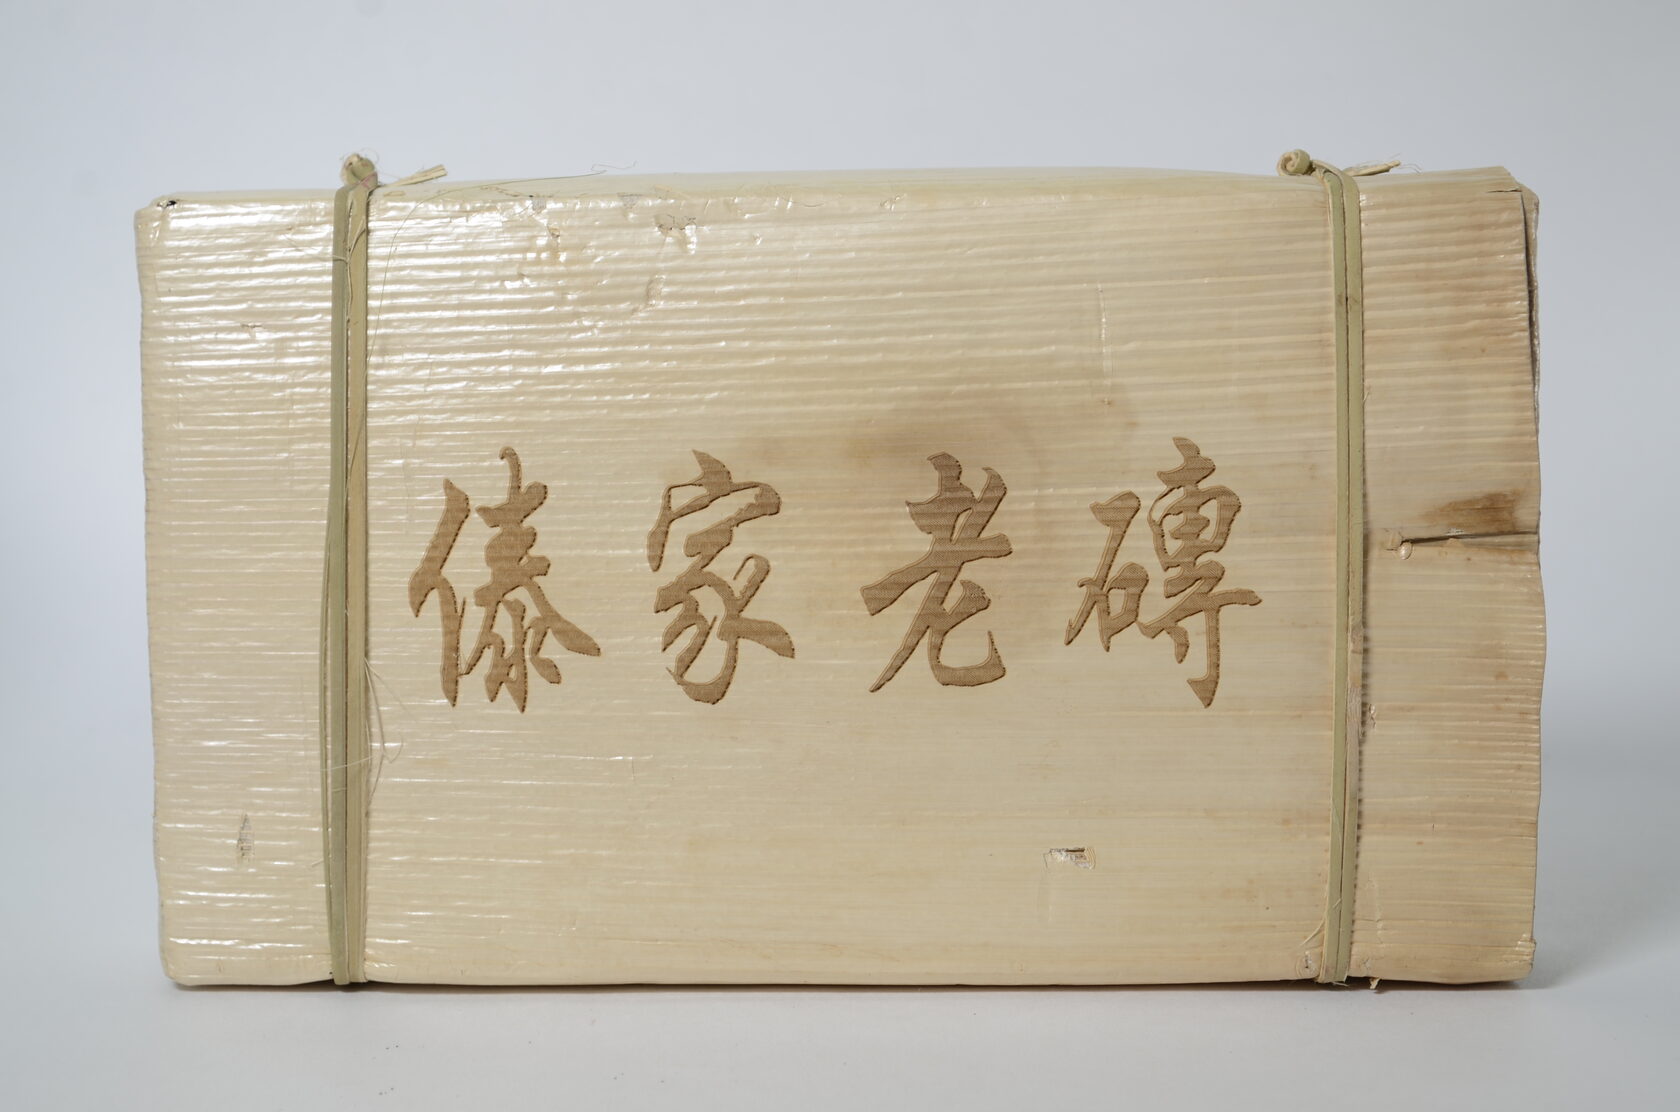 傣家老磚